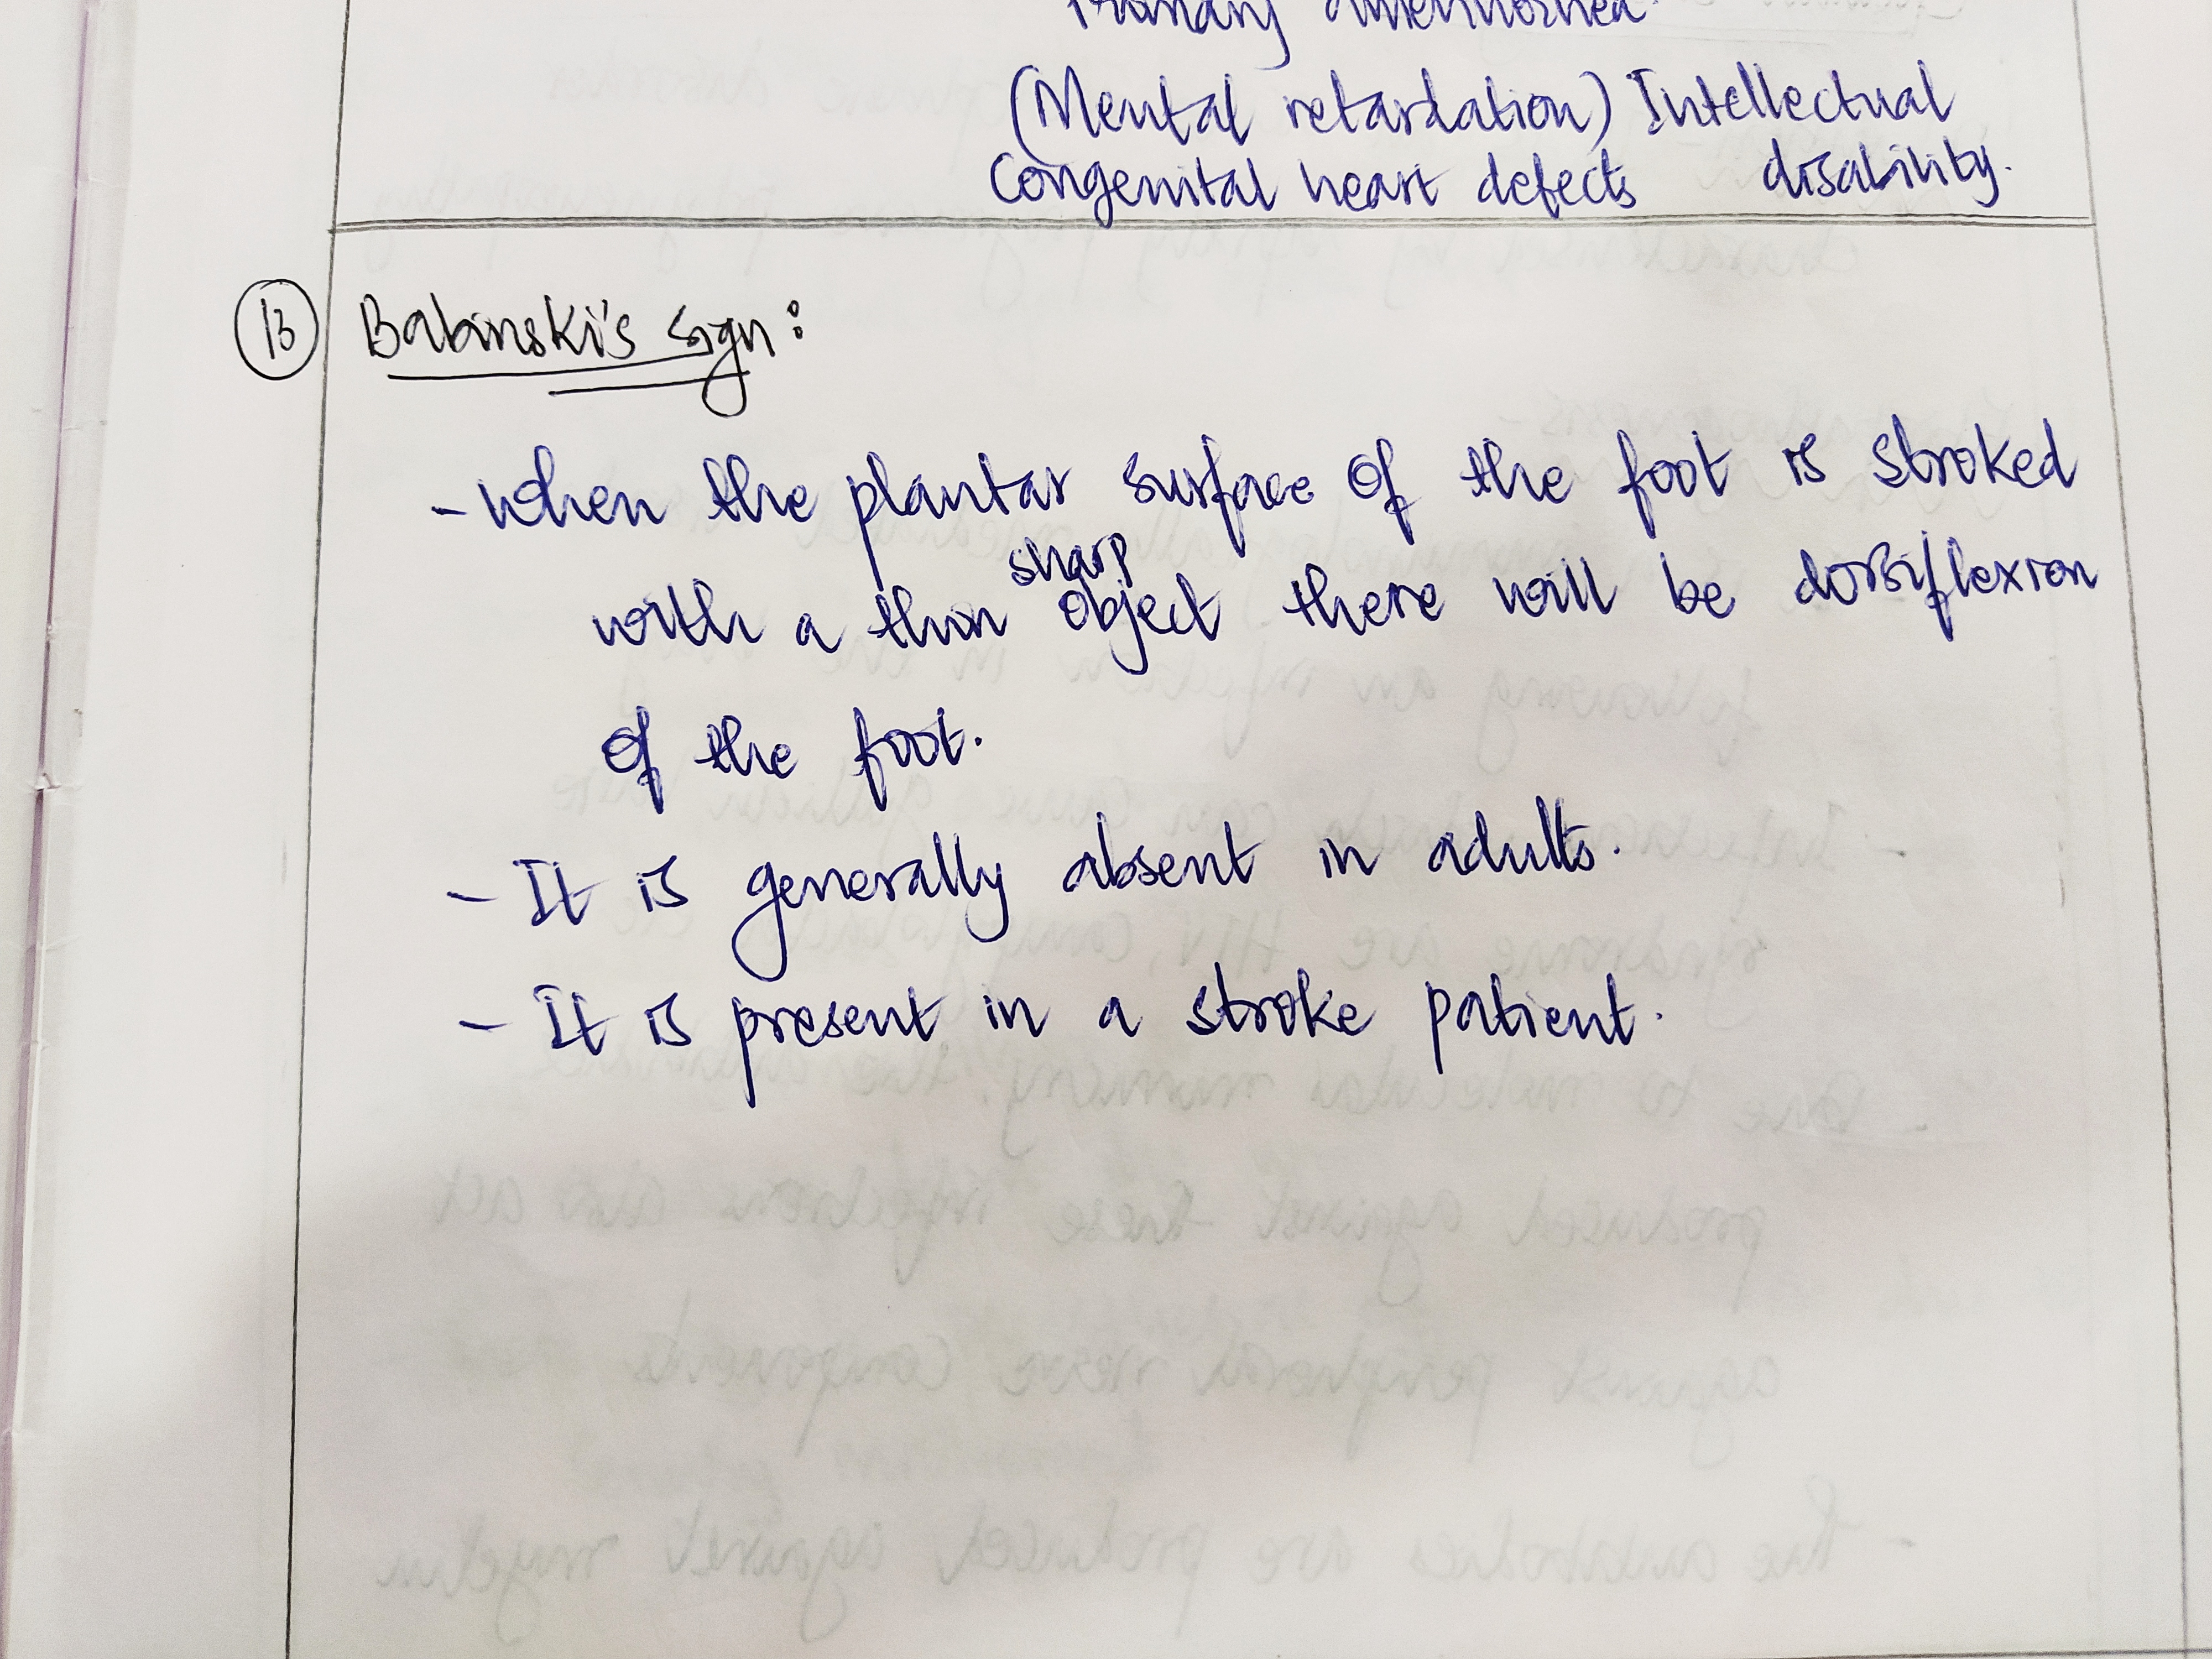 Primary amenhorrhea.
(Mental retardation) Intellectual
Congenital heart defects disability.
13 Babinski's sign:
- when the plantar surface of the foot is stroked
sharp
with a thin object there will be dorsiflexion
of the foot.
- It is generally absent in adults.
- It is present in a stroke patient.